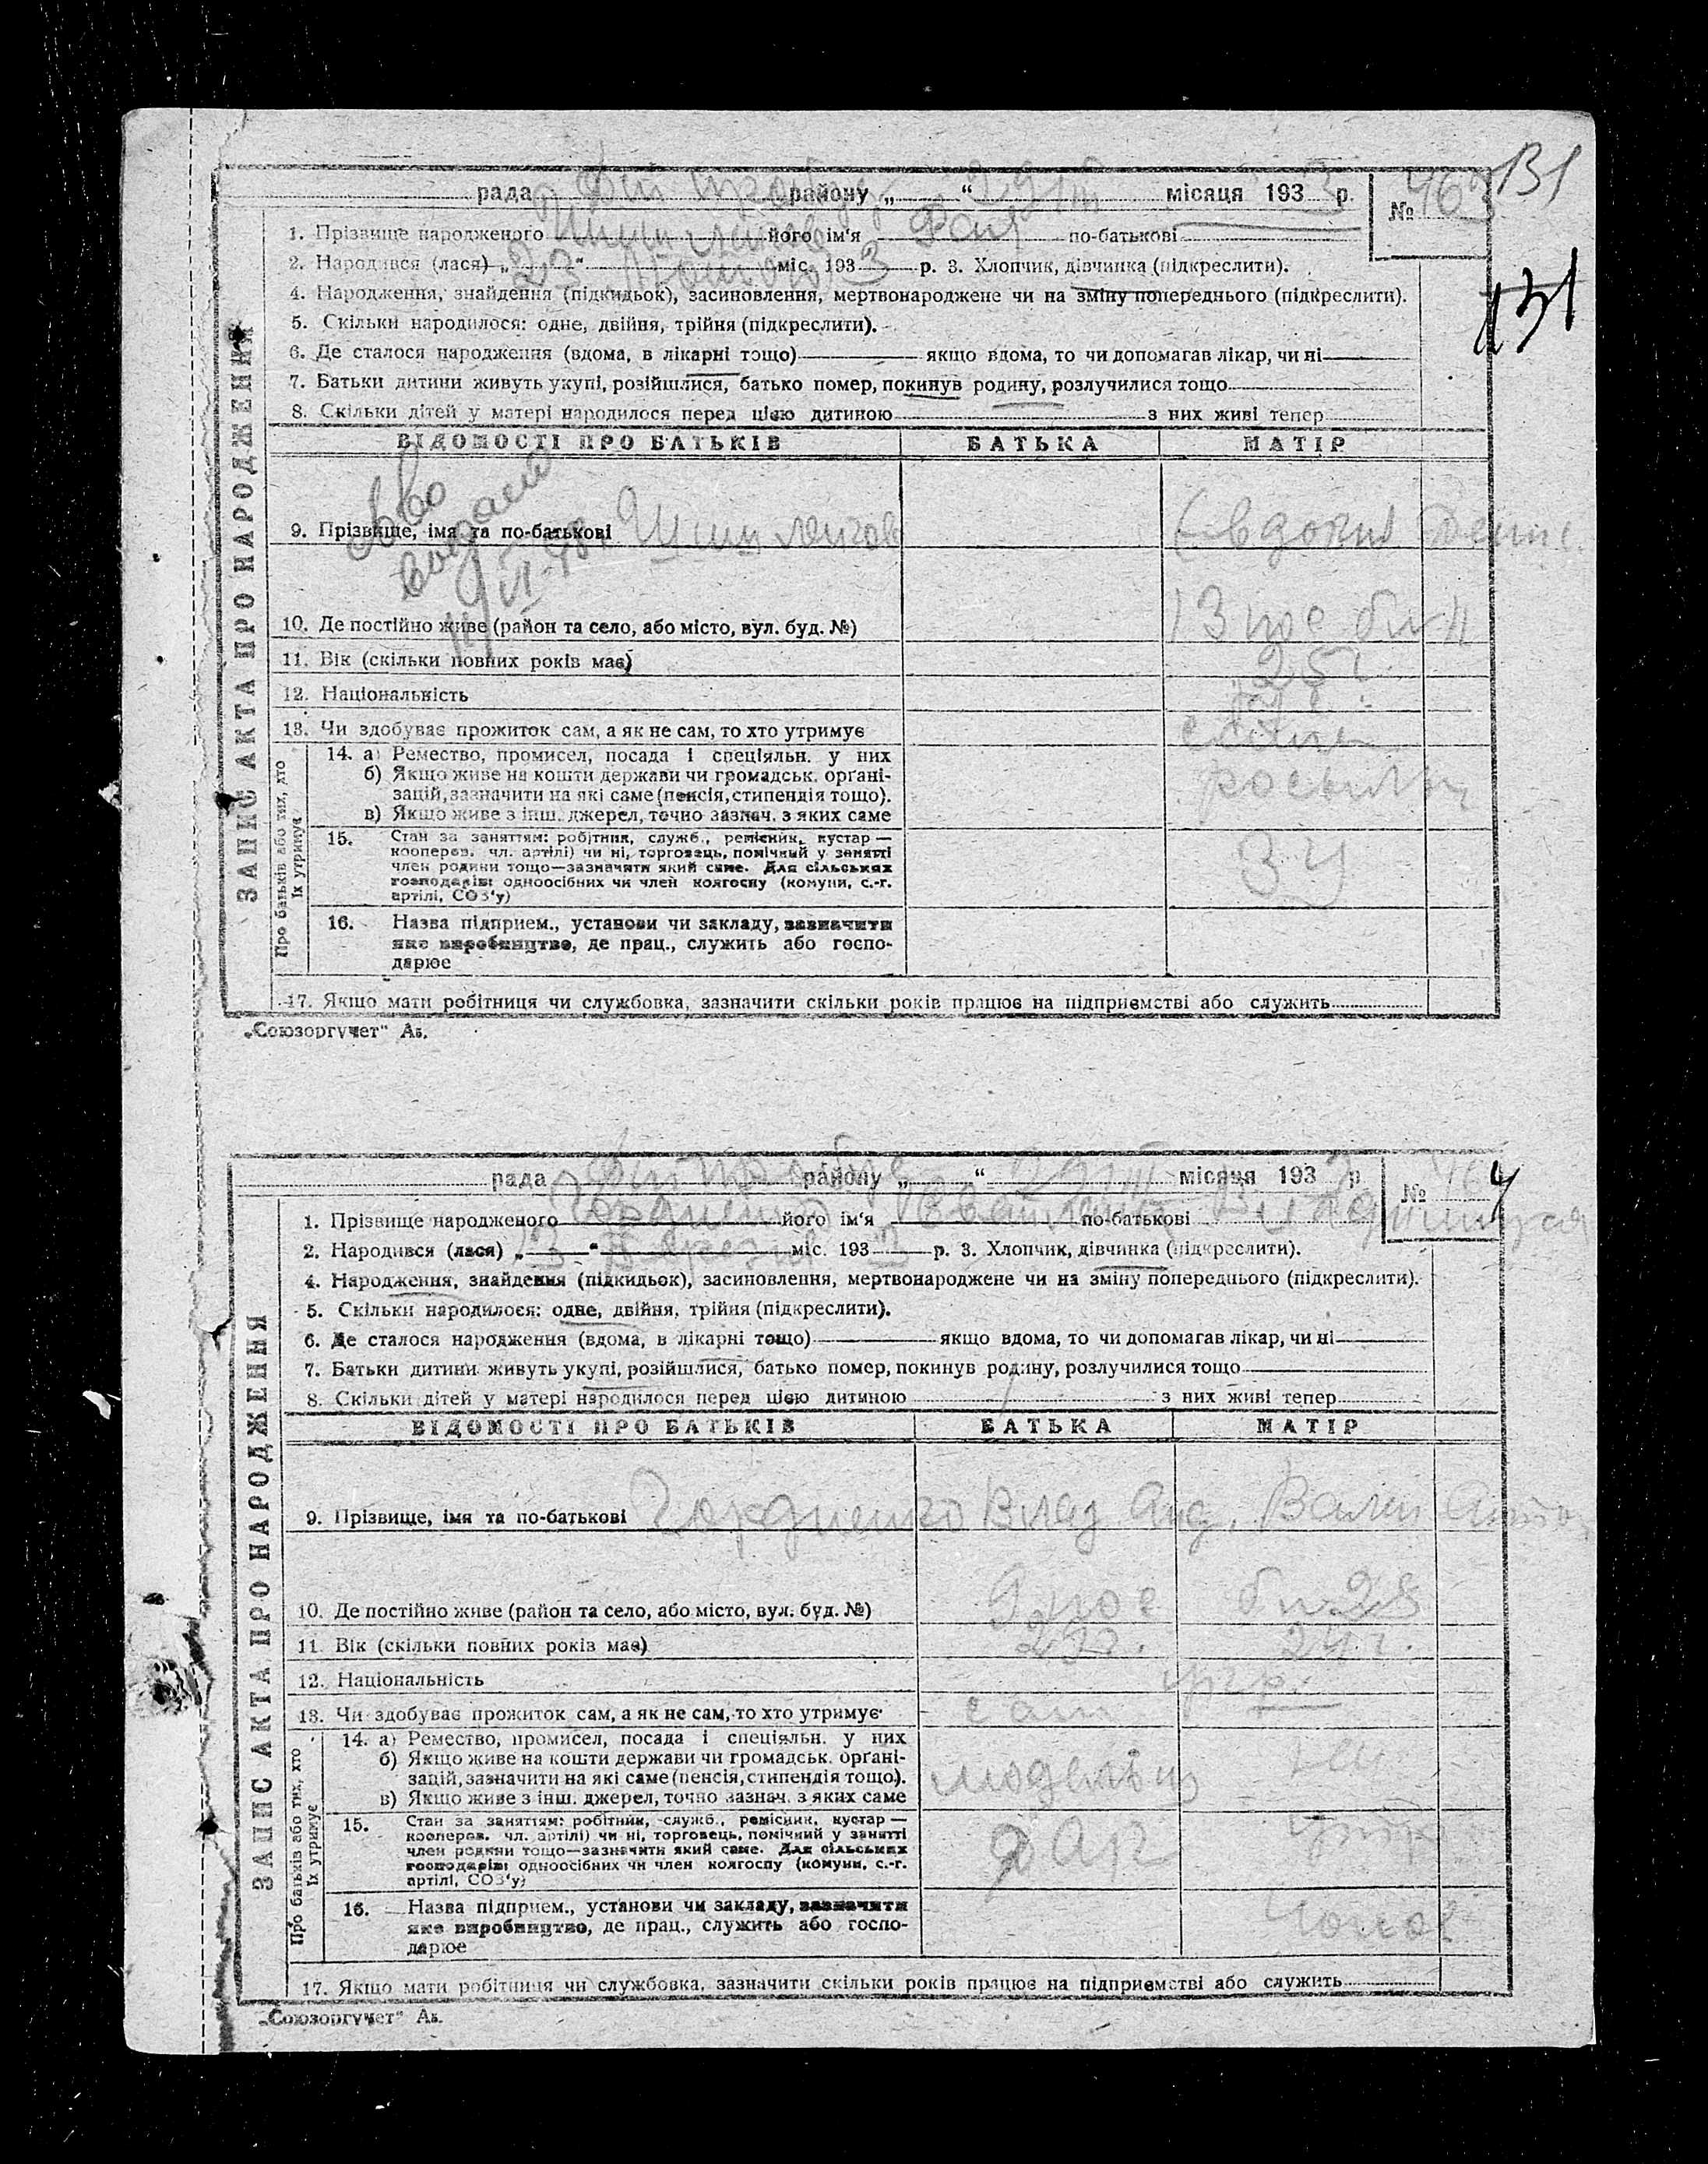 131
131
рада району „ “ 29/III місяця 1933 р. № 463
1. Прізвище народженого його ім'я Фаїн по-батькові
2. Народився (лася) „23“ міс. 1933 р. 3. Хлопчик, дівчинка (підкреслити).
4. Народження, знайдення (підкидьок), засиновлення, мертвонароджене чи на зміну попереднього (підкреслити).
5. Скільки народилося: одне, двійня, трійня (підкреслити).
6. Де сталося народження (вдома, в лікарні тощо) якщо вдома, то чи допомагав лікар, чи ні
7. Батьки дитини живуть укупі, розійшлися, батько помер, покинув родину, розлучилися тощо
8. Скільки дітей у матері народилося перед цією дитиною з них живі тепер
ЗАПИС АКТА ПРО НАРОДЖЕННЯ
ВІДОМОСТІ ПРО БАТЬКІВ БАТЬКА МАТІР
9. Прізвище, імя та по-батькові Євдокия Денис.
10. Де постійно живе (район та село, або місто, вул. буд. №) 13 пос
11. Вік (скільки повних років має) 25 г.
12. Національність
13. Чи здобуває прожиток сам, а як не сам, то хто утримує
Про батьків або тих, хто їх утримує
14. а) Ремество, промисел, посада і спеціяльн. у них
б) Якщо живе на кошти держави чи громадськ. органі-
зацій, зазначити на які саме (пенсія, стипендія тощо).
в) Якщо живе з інш. джерел, точно зазнач. з яких саме
15. Стан за заняттям: робітник, служб., ремісник, кустар —
кооперов. чл. артілі) чи ні, торговець, помічний у занятті
член родини тощо—зазначити який саме. Для сільських
господарів: одноосібних чи член колгоспу (комуни, с.-г.
артілі, СОЗ'у)
16. Назва підприєм., установи чи закладу, зазначити
яке виробництво, де прац., служить або госпо-
дарює
17. Якщо мати робітниця чи службовка, зазначити скільки років працює на підприємстві або служить
„Союзоргучет“ А5.
рада району „ “ 29/III місяця 1933 р. № 464
1. Прізвище народженого Гордиенко його ім'я Светлана по-батькові
2. Народився (лася) „ “ міс. 1933 р. 3. Хлопчик, дівчинка (підкреслити).
4. Народження, знайдення (підкидьок), засиновлення, мертвонароджене чи на зміну попереднього (підкреслити).
5. Скільки народилося: одне, двійня, трійня (підкреслити).
6. Де сталося народження (вдома, в лікарні тощо) якщо вдома, то чи допомагав лікар, чи ні
7. Батьки дитини живуть укупі, розійшлися, батько помер, покинув родину, розлучилися тощо
8. Скільки дітей у матері народилося перед цією дитиною з них живі тепер
ЗАПИС АКТА ПРО НАРОДЖЕННЯ
ВІДОМОСТІ ПРО БАТЬКІВ БАТЬКА МАТІР
9. Прізвище, імя та по-батькові Гордиенко Влад Анд.
10. Де постійно живе (район та село, або місто, вул. буд. №) 9 пос бл 28
11. Вік (скільки повних років має) 24 г.
12. Національність укр.
13. Чи здобуває прожиток сам, а як не сам, то хто утримує сам
Про батьків або тих, хто їх утримує
14. а) Ремество, промисел, посада і спеціяльн. у них
б) Якщо живе на кошти держави чи громадськ. органі-
зацій, зазначити на які саме (пенсія, стипендія тощо).
в) Якщо живе з інш. джерел, точно зазнач. з яких саме
15. Стан за заняттям: робітник, служб., ремісник, кустар —
кооперов. чл. артілі) чи ні, торговець, помічний у занятті
член родини тощо—зазначити який саме. Для сільських
господарів: одноосібних чи член колгоспу (комуни, с.-г.
артілі, СОЗ'у)
16. Назва підприєм., установи чи закладу, зазначити
яке виробництво, де прац., служить або госпо-
дарює
17. Якщо мати робітниця чи службовка, зазначити скільки років працює на підприємстві або служить
„Союзоргучет“ А5.